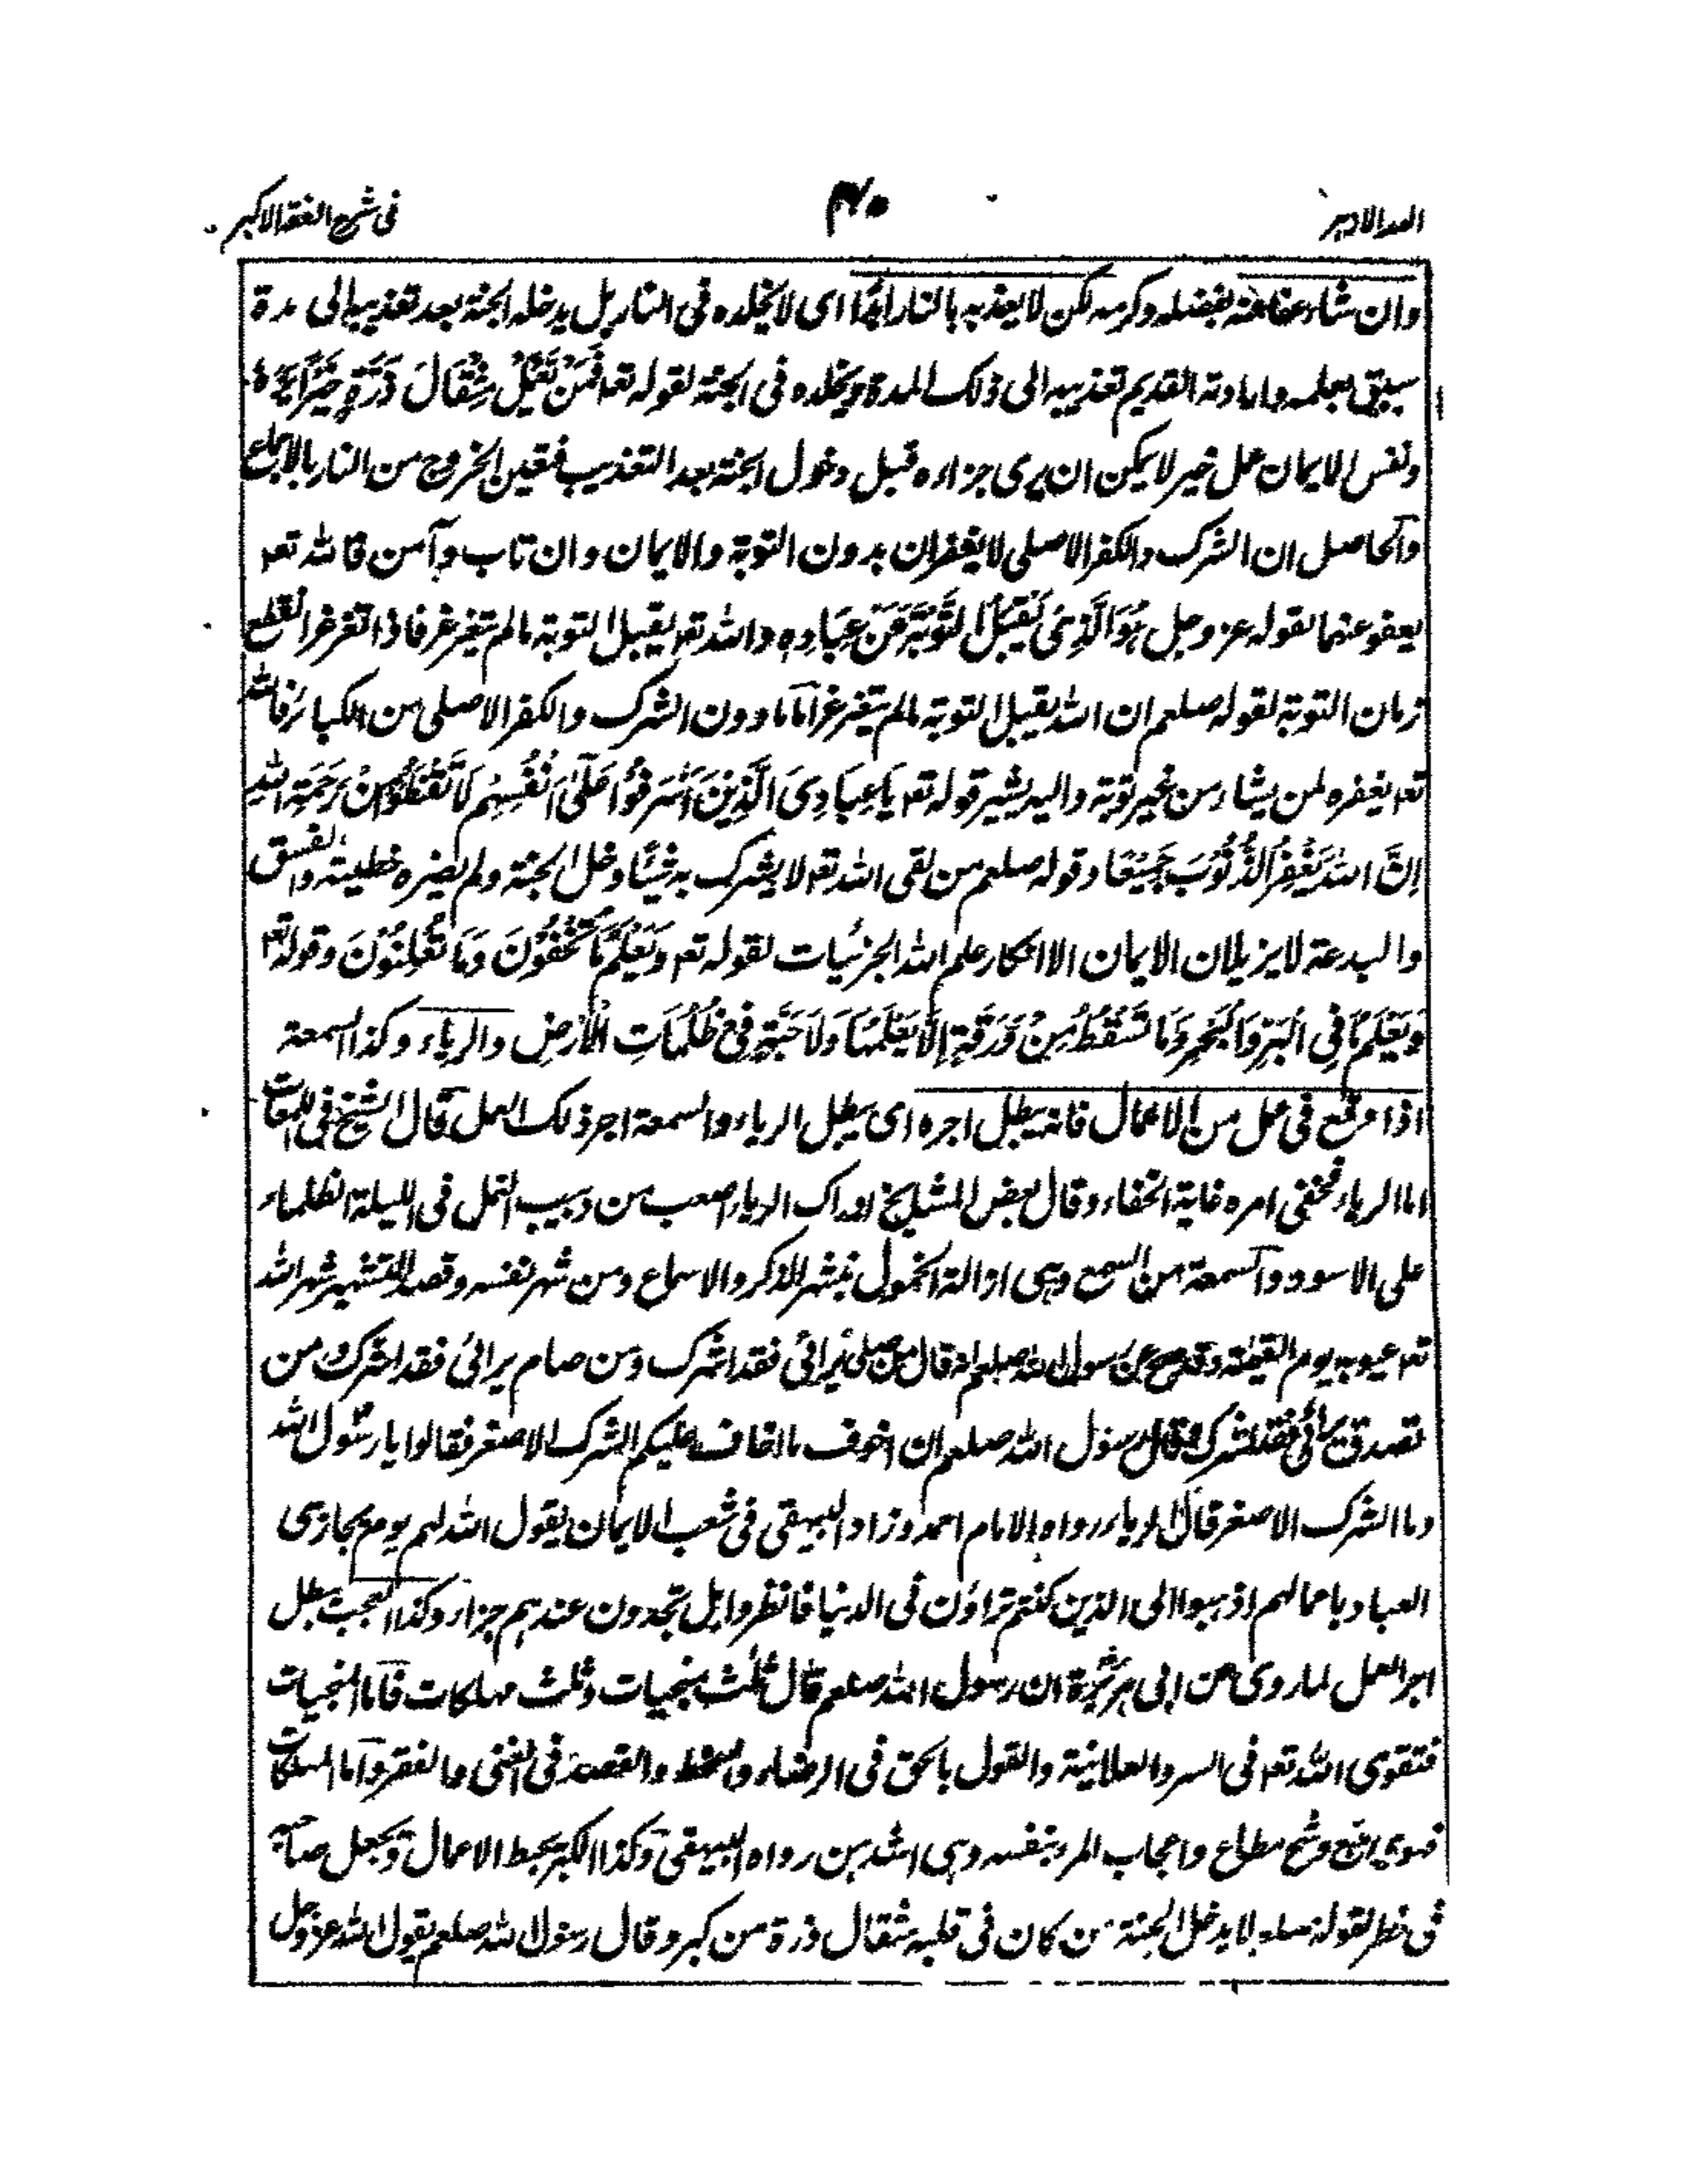 فى شرح الفقه الاكبر
وان شاء عفا عنه بفضله وكرمه لكن لا يعذبه بالنار ابدًا اى لا يخلده فى النار بل يدخله الجنة بعد تعذيبه الى مدة
سبق بعلمه وارادته القديم تعذيبه الى ذلك المدة ويخلده فى الجنة لقوله تعـ فَمَنْ يَّعْمَلْ مِثْقَالَ ذَرَّةٍ خَيْرًا يَّرَهٗ
ونفس الايمان عمل خير لا يمكن ان يرى جزاءه قبل دخول الجنة بعد التعذيب فتعين الخروج من النار بالاجماع
والحاصل ان الشرك والكفر الاصلى لا يغفران بدون التوبة والايمان وان تاب وآمن فالله تعـ
يعفو عنهما لقوله عز وجل هُوَ الَّذِىْ يَقْبَلُ التَّوْبَةَ عَنْ عِبَادِهٖ والله تعـ يقبل التوبة مالم يتغرغر فاذا تغرغر انقطع
زمان التوبة لقوله صلعم ان الله يقبل التوبة مالم يتغرغر امّا ما دون الشرك والكفر الاصلى من الكبائر فالله
تعـ يغفره لمن يشاء من غير توبة واليه يشير قوله تعـ يَا عِبَادِىَ الَّذِيْنَ اَسْرَفُوْا عَلٰٓى اَنْفُسِهِمْ لَا تَقْنَطُوْا مِنْ رَحْمَةِ اللهِ
اِنَّ اللهَ يَغْفِرُ الذُّنُوْبَ جَمِيْعًا وقوله صلعم من لقى الله تعـ لا يشرك به شيئًا دخل الجنة ولم يضره خطيئة والفسق
والبدعة لا يزيلان الايمان الا انكار علم الله الجزئيات لقوله تعـ وَيَعْلَمُ مَا تُخْفُوْنَ وَمَا تُعْلِنُوْنَ وقوله تعـ
وَيَعْلَمُ مَا فِى الْبَرِّ وَالْبَحْرِ وَمَا تَسْقُطُ مِنْ وَرَقَةٍ اِلَّا يَعْلَمُهَا وَلَا حَبَّةٍ فِىْ ظُلُمَاتِ الْاَرْضِ والرياء وكذا السمعة
اذا وقع فى عمل من الاعمال فانه يبطل اجره اى يبطل الرياء والسمعة اجر ذلك العمل قال الشيخ فى اللمعات
اما الرياء فخفى امره غاية الخفاء وقال بعض المشايخ ادراك الرياء اصعب من دبيب النمل فى الليلة الظلماء
على الاسود والسمعة من السمع وهى ازالة الخمول بنشر الذكر والاسماع ومن شهر نفسه وقصد التشهير شهر الله
تعـ عيوبه يوم القيمة وقد صح عن رسول الله صلعم انه قال من صلى يرائى فقد اشرك ومن صام يرائى فقد اشرك ومن
تصدق يرائى فقد اشرك وقال رسول الله صلعم ان اخوف ما اخاف عليكم الشرك الاصغر فقالوا يا رسول الله
وما الشرك الاصغر قال الرياء رواه الامام احمد وزاد البيهقى فى شعب الايمان يقول الله لهم يوم يجازى
العباد باعمالهم اذهبوا الى الذين كنتم تراؤن فى الدنيا فانظروا هل تجدون عندهم جزاء وكذا العجب يبطل
اجر العمل لما روى عن ابى هريرة ان رسول الله صلعم قال ثلث منجيات وثلث مهلكات فاما المنجيات
فتقوى الله تعـ فى السر والعلانية والقول بالحق فى الرضاء والسخط والقصد فى الغنى والفقر واما المهلكات
فهوى متبع وشح مطاع واعجاب المرء بنفسه وهى اشدهن رواه البيهقى وكذا الكبر يحبط الاعمال ويجعل صاحبه
فى خطر لقوله صلعم لا يدخل الجنة من كان فى قلبه مثقال ذرة من كبر وقال رسول الله صلعم يقول الله عز وجل